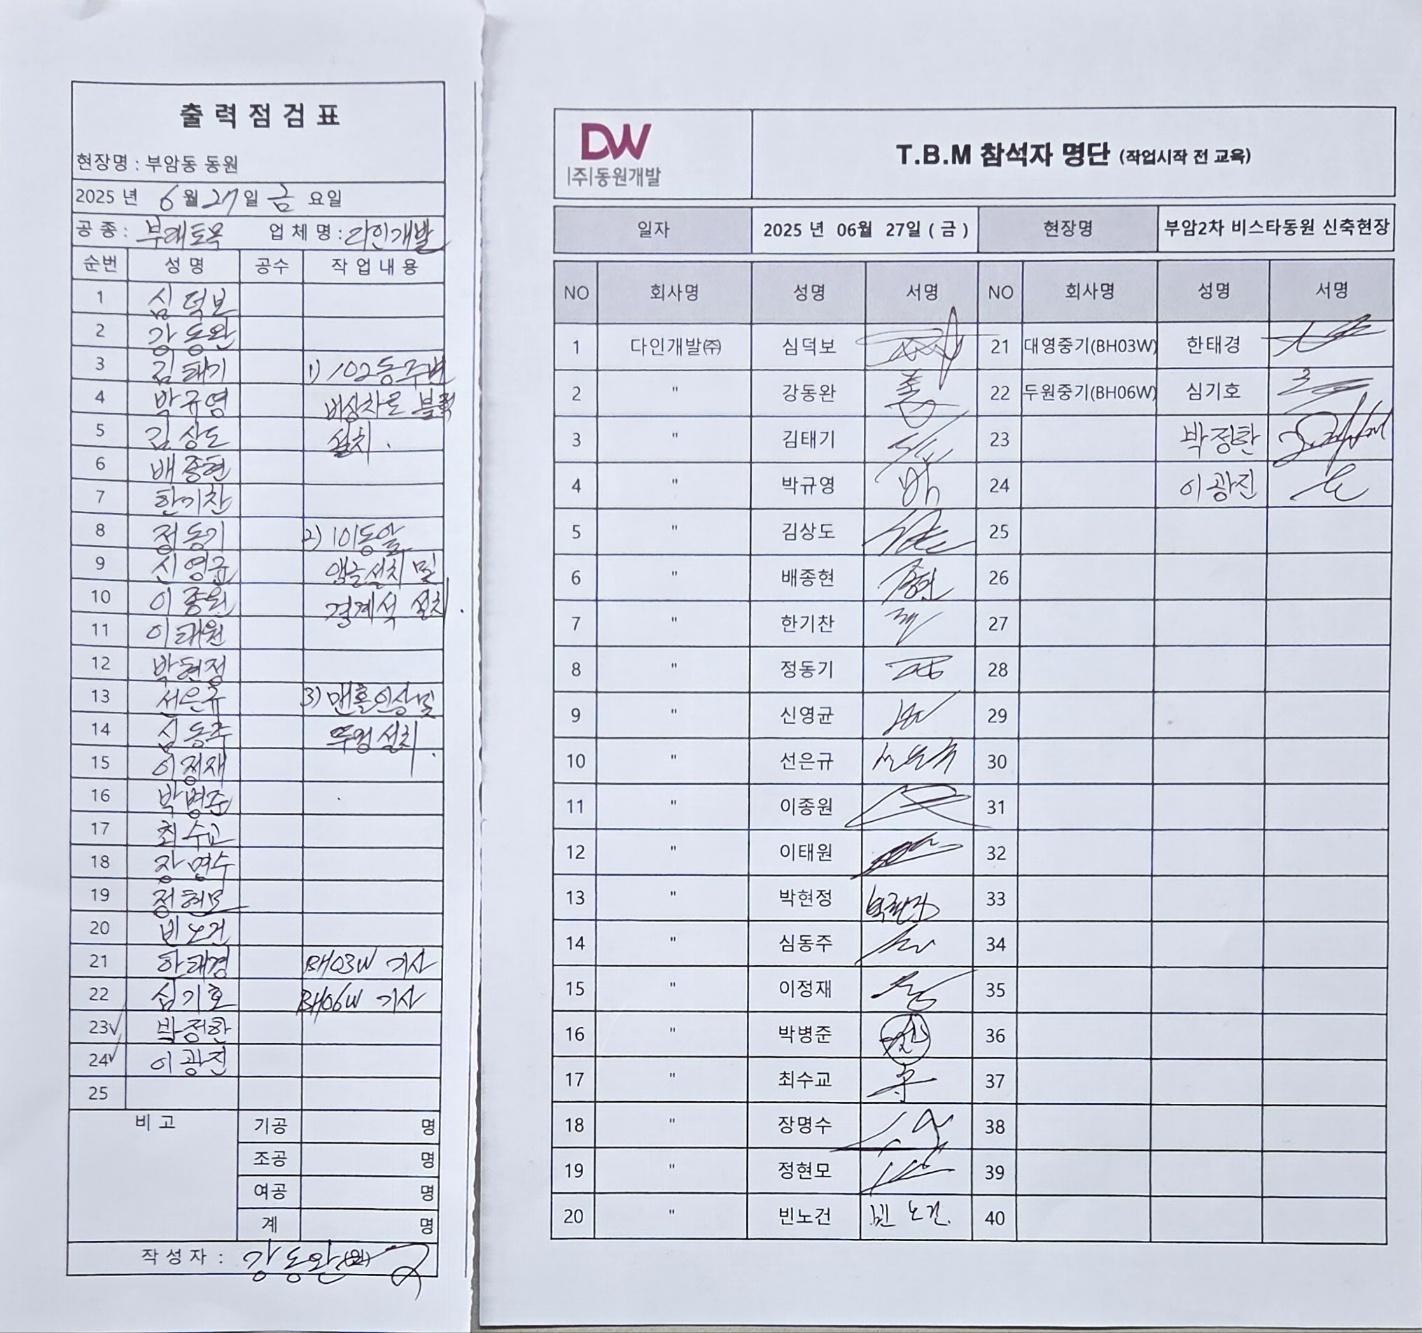 출력점검표
현장명 : 부암동 동원
2025 년 6 월 27 일 금 요일
공 종 : 부대토목 업 체 명 : 다인개발
순번 성 명 공수 작 업 내 용
1 심덕보
2 강동완
3 김태기 1) 102동 주변
4 박규영 비상차로 블럭
5 김상도 설치.
6 배종현
7 한기찬
8 정동기 2) 101동 앞
9 신영균 앵글설치 및
10 이종원 경계석 설치.
11 이태원
12 박현정
13 선은규 3) 맨홀인상 및
14 심동주 뚜껑 설치.
15 이정재
16 박병준
17 최수교
18 장명수
19 정현모
20 빈노건
21 한태경 BH03W 기사
22 심기호 BH06W 기사
23✓ 박정환
24✓ 이광진
25
비 고 기공 명
조공 명
여공 명
계 명
작 성 자 : 강동완
DW
(주)동원개발
T.B.M 참석자 명단 (작업시작 전 교육)
일자 2025 년 06월 27일 ( 금 ) 현장명 부암2차 비스타동원 신축현장
NO 회사명 성명 서명 NO 회사명 성명 서명
1 다인개발㈜ 심덕보 21 대영중기(BH03W) 한태경
2 " 강동완 22 두원중기(BH06W) 심기호
3 " 김태기 23 박정환
4 " 박규영 24 이광진
5 " 김상도 25
6 " 배종현 종현 26
7 " 한기찬 27
8 " 정동기 28
9 " 신영균 29
10 " 선은규 선은규 30
11 " 이종원 31
12 " 이태원 32
13 " 박현정 박현정 33
14 " 심동주 34
15 " 이정재 35
16 " 박병준 36
17 " 최수교 37
18 " 장명수 38
19 " 정현모 39
20 " 빈노건 빈노건. 40